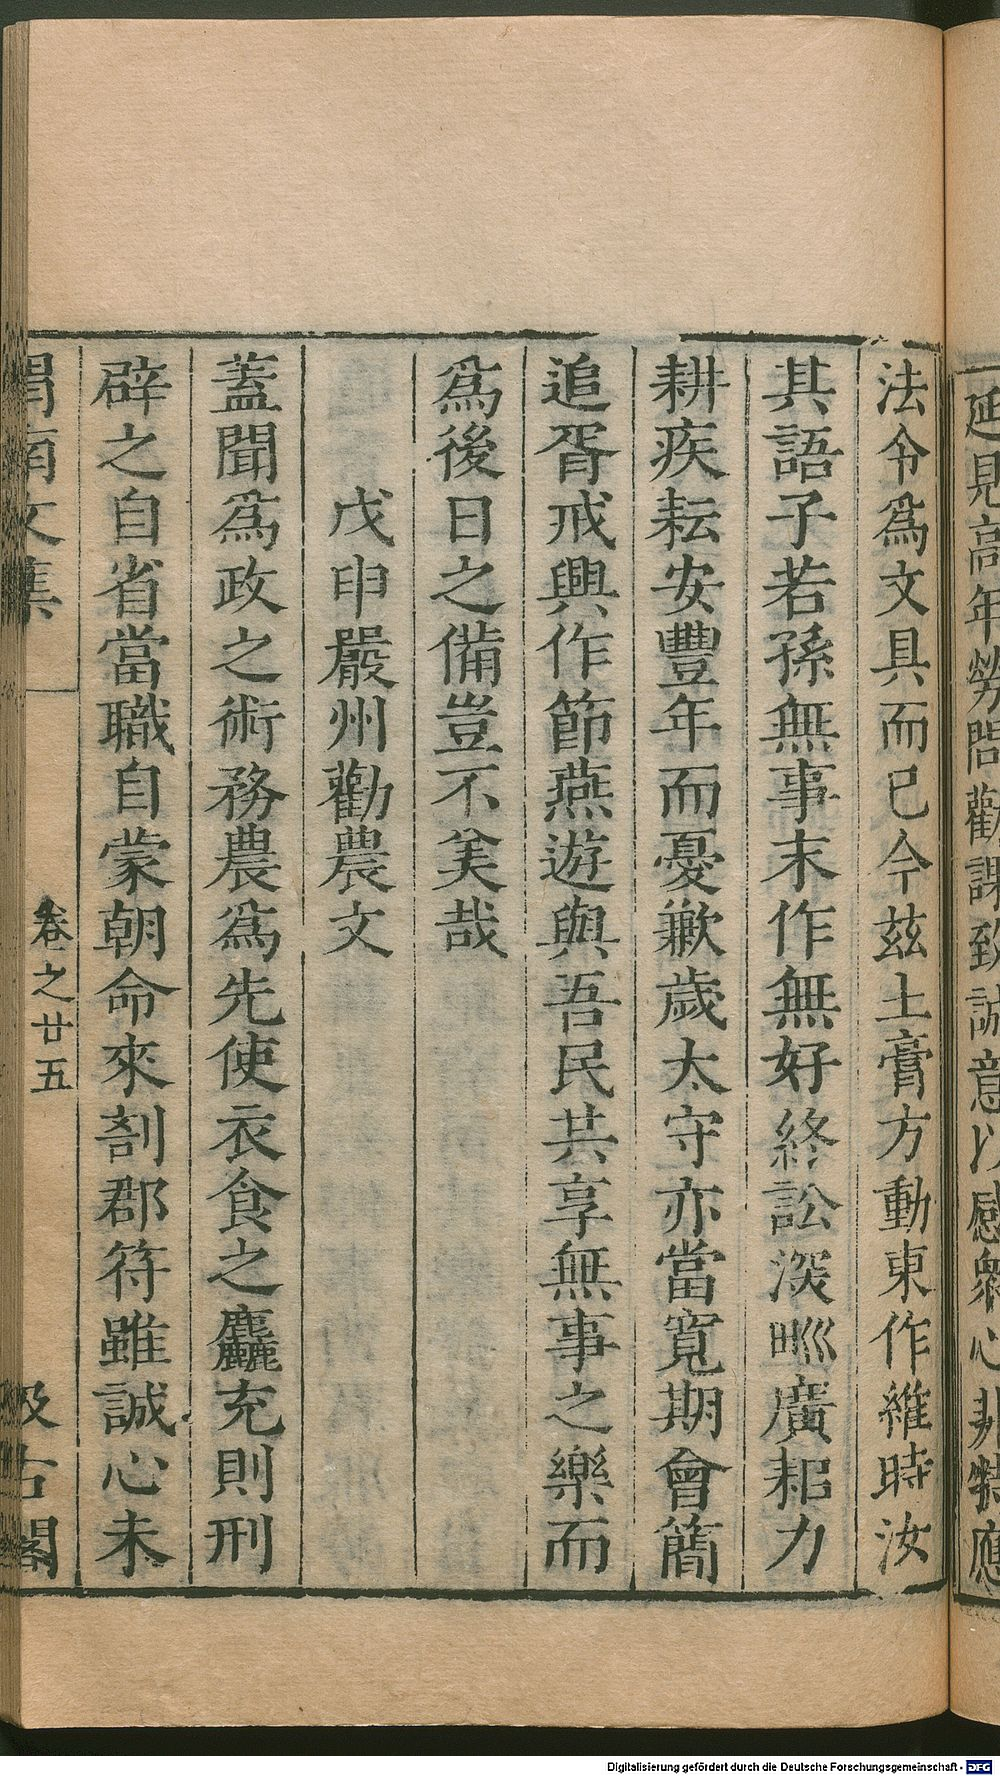 延見高年勞問勸課致誠意以感衆心非特應
法令爲文具而已今茲土膏方動東作維時汝
其語子若孫無事末作無好終訟深畊廣耜力
耕疾耘安豐年而憂歉歲太守亦當寬期會簡
追胥戒興作節燕遊與吾民共享無事之樂而
爲後日之備豈不美哉
戊申嚴州勸農文
蓋聞爲政之術務農爲先使衣食之麤充則刑
辟之自省當職自蒙朝命來剖郡符雖誠心未
渭南文集 卷之廿五 汲古閣
Digitalisierung gefördert durch die Deutsche Forschungsgemeinschaft - DFG